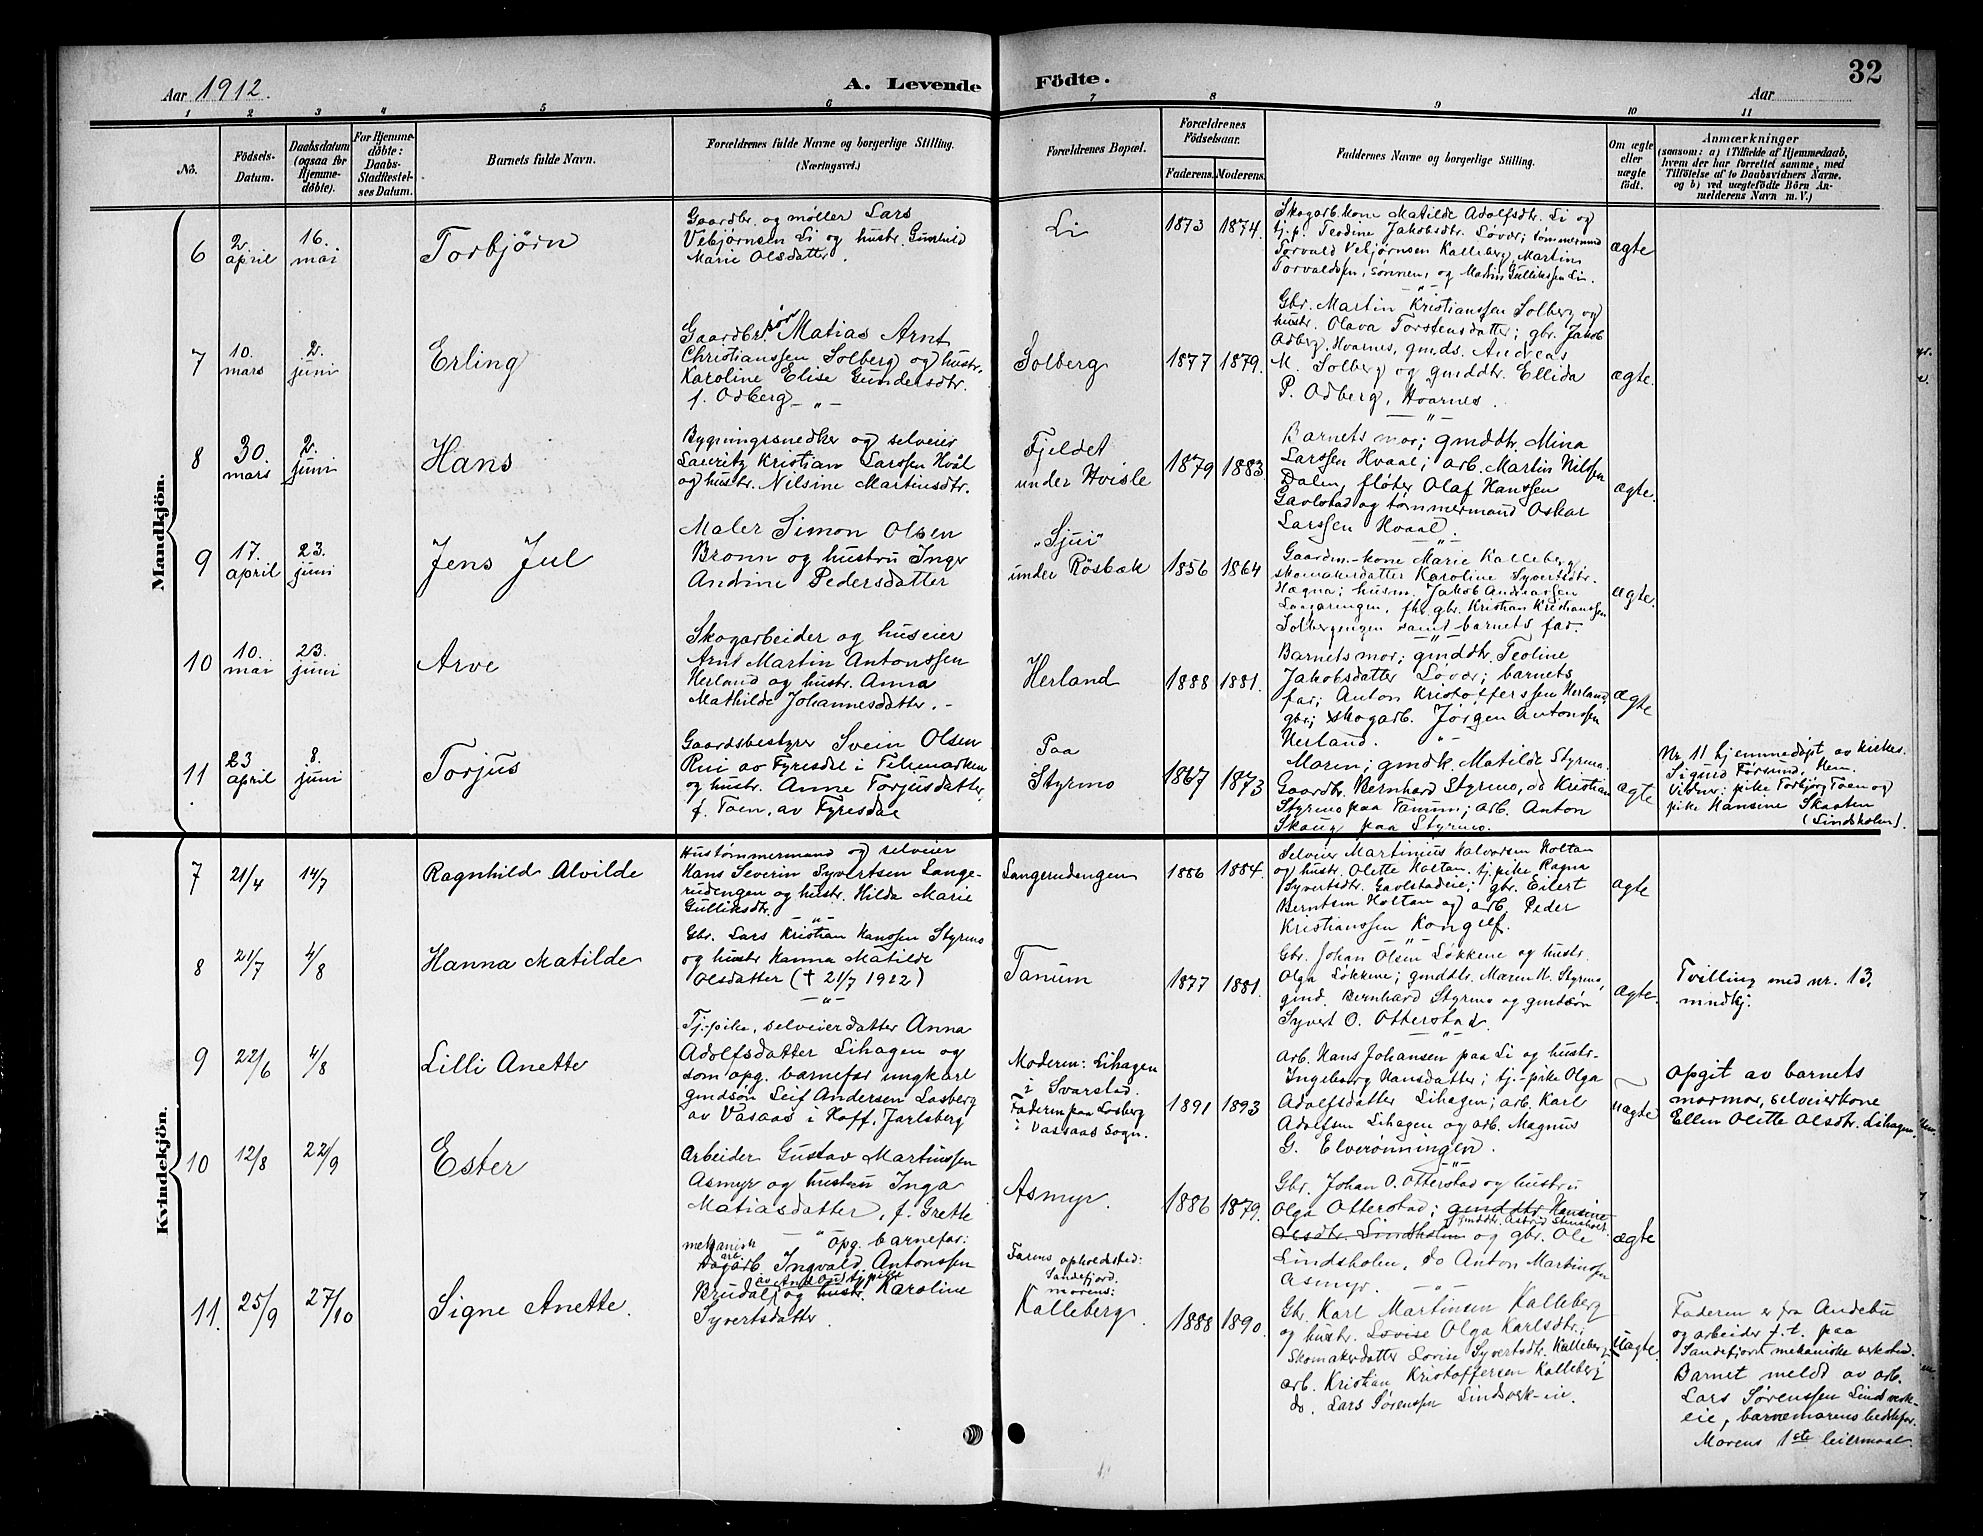 Aar 1912.
A. Levende Födte.
32
Aar
1 2 3 4 5 6 7 8 9 10 11
No.
Födsels-
Datum.
Daabsdatum
(ogsaa for
Hjemme-
døbte).
For Hjemme-
döbte:
Daabs-
Stadfæstel-
ses Datum.
Barnets fulde Navn.
Forældrenes fulde Navne og borgerlige Stilling.
(Næringsvei.)
Forældrenes Bopæl.
Forældrenes
Födselsaar.
Faderens. Moderens.
Faddernes Navne og borgerlige Stilling.
Om ægte
eller
uægte
födt.
Anmærkninger
(saasom: a) i Tilfælde af Hjemmedaab,
hvem der har forrettet samme, med
Tilföielse af to Daabsvidners Navne,
og b) ved uægtefödte Börn An-
melderens Navn m. V.)
Mandkjön.
6
2.
april
16.
mai
Torbjørn
Gaardbr. og møller Lars
Vebjørnsen Li og hustr. Gunhild
Marie Olsdatter.
Li
1873
1874.
Skogarb.kone Matilde Adolfsdtr. Li og
tj.p. Teodine Jakobsdtr. Løvær; tømmermand
Torvald Vebjørnsen Kalleberg, Martin
Torvaldsen, sønnen, og Martin Gulliksen Li.
ægte
7
10.
mars
2.
juni
Erling
Gaardbr. søn Matias Arnt
Christianssen Solberg og hustr.
Karoline Elise Gundersdtr.
f. Odberg
Solberg
1877
1879.
Gbr. Martin Kristianssen Solberg og
hustr. Olava Torstensdatter; gbr. Jakob
Odberg, Hvarnes, gmds. Andreas
M. Solberg og gmddtr. Ellida
P. Odberg, Hvarnes.
ægte.
8
30.
mars
2.
juni
Hans
Bygningssnedker og selveier
Lauritz Kristian Larssen Hvål
og hustr. Nilsine Martinsdtr.
Fjeldet
under Hvisle
1879
1883.
Barnets mor; gmddtr. Mina
Larssen Hvaal; arb. Martin Nilssen
Dalen, fløter Olaf Hanssen
Gavlstad og tømmermand Oskar
Larssen Hvaal.
ægte.
9
17.
april
23.
juni
Jens Jul
Maler Simon Olsen
Bronn og hustru Inger
Andine Pedersdatter
"Sjui"
under Røsbæk
1856
1864
Gaardm.-kone Marie Kalleberg,
skomakerdatter Karoline Syvertsdtr.
Hægna; husm. Jakob Andreassen
fhv. gbr. Kristian Kristianssen
Solbergengen samt barnets far.
ægte.
10
10.
mai
23.
juni
Arve
Skogarbeider og huseier
Arnt Martin Antonssen
Herland og hustr. Anna
Mathilde Johannesdatter.
Herland
1888
1881.
Barnets mor; gmddtr. Teoline
Jakobsdatter Løvær; barnets
far; Anton Kristofferssen Herland,
gbr; skogarb. Jørgen Antonssen
Herland.
ægte
11
23
april
8.
juni
Torjus
Gaardsbestyrer Svein Olsen
Rui av Fyresdal i Telemarken
og hustr. Anne Torjusdatter,
f. Toen, av Fyresdal
Paa
Styrmo
1867
1873
Maren; gmdk. Matilde Styrmo.
Gaardbr. Bernhard Styrmo, do Kristian
Styrmo paa Tanum; arb. Anton
Skaug paa Styrmo.
ægte
Nr. 11 hjemmedøpt av kirkes.
Sigurd Førsund, Hem.
Vidner: pike Torbjørg Toen og
pike Hansine Skaaten
(Lindsholm).
Kvindekjön.
7
21/4
14/7
Ragnhild Alvilde
Hustømmermand og selveier
Hans Severin Syvertsen Lange-
rudengen og hustr. Hilda Marie
Gulliksdtr.
Langerudengen
1886
1884.
Selveier Martinius Halvorsen Holtan
og hustr. Olette Holtan. tj.pike Ragna
Syvertsdtr. Gavlstadeie; gbr. Eilert
Berntsen Holtan og arb. Peder
Kristianssen Kongelf.
ægte
8
21/7
4/8
Hanna Matilde
Gbr. Lars Kristian Hanssen Styrmo
og hustr Hanna Matilde
Olsdatter († 21/7 1912)
Tanum
1877
1881.
Gbr. Johan Olsen Løkkene og hustr.
Olga Løkkene; gmddtr. Maren H. Styrmo,
gmd. Bernhard Styrmo og gmdsøn
Syvert O. Otterstad.
ægte.
Tvilling med nr. 13,
mndkj.
9
22/6
4/8
Lilli Anette
Tj.-pike, selveierdatter Anna
Adolfsdatter Lihagen og
som opg. barnefar ungkarl
gmdsøn Leif Andersen Losberg
av Vasaas i Hoff, Jarlsberg
Moderen: Lihagen
i Svarstad.
Faderen paa Losberg
i Vassaas Sogn.
1891
1893
Arb. Hans Johansen paa Li og hustr.
Ingeborg Hansdatter; tj.-pike Olga
Adolfsdatter Lihagen; arb. Karl
Adolfsen Lihagen og arb. Magnus
G. Elverønningen.
uægte
Opgit av barnets
mormor, selveierkone
Ellen Olette Olsdtr. Lihagen.
10
12/8
22/9
Ester
Arbeider Gustav Martinssen
Asmyr og hustru Inga
Matiasdatter, f. Grette
Asmyr.
1886
1879.
Gbr. Johan O. Otterstad og hustru
Olga Otterstad; gmddtr. Hansine
gmddtr. Astrid Stensholt
Olsdtr. Lindsholm og gbr. Ole
Lindsholm, do Anton Martinssen
Asmyr.
ægte
11.
25/9
27/10
Signe Anette.
opg. barnefar:
mekanisk
arb. Ingvald Antonssen
av Andebu tj.pike
Brudal, og hustr. Karoline
Syvertsdatter.
Farens opholdssted:
Sandefjord.
morens:
Kalleberg.
1888
1890.
Gbr. Karl Martinsen Kalleberg
og hustr. Lovise Olga Karlsdtr.;
Skomakerdatter Lovise Syvertsdtr. Kalleberg,
arb. Kristian Kristoffersen Kalleberg
do. Lars Sørenssen Lindsverk-eie.
Uægte.
Faderen er fra Andebu
og arbeider f.t. paa
Sandefjord mekaniske verksted.
Barnet meldt av arb.
Lars Sørenssen Lindsverk-
eie, barnemorens bedstefar.
Morens 1ste leiermaal.